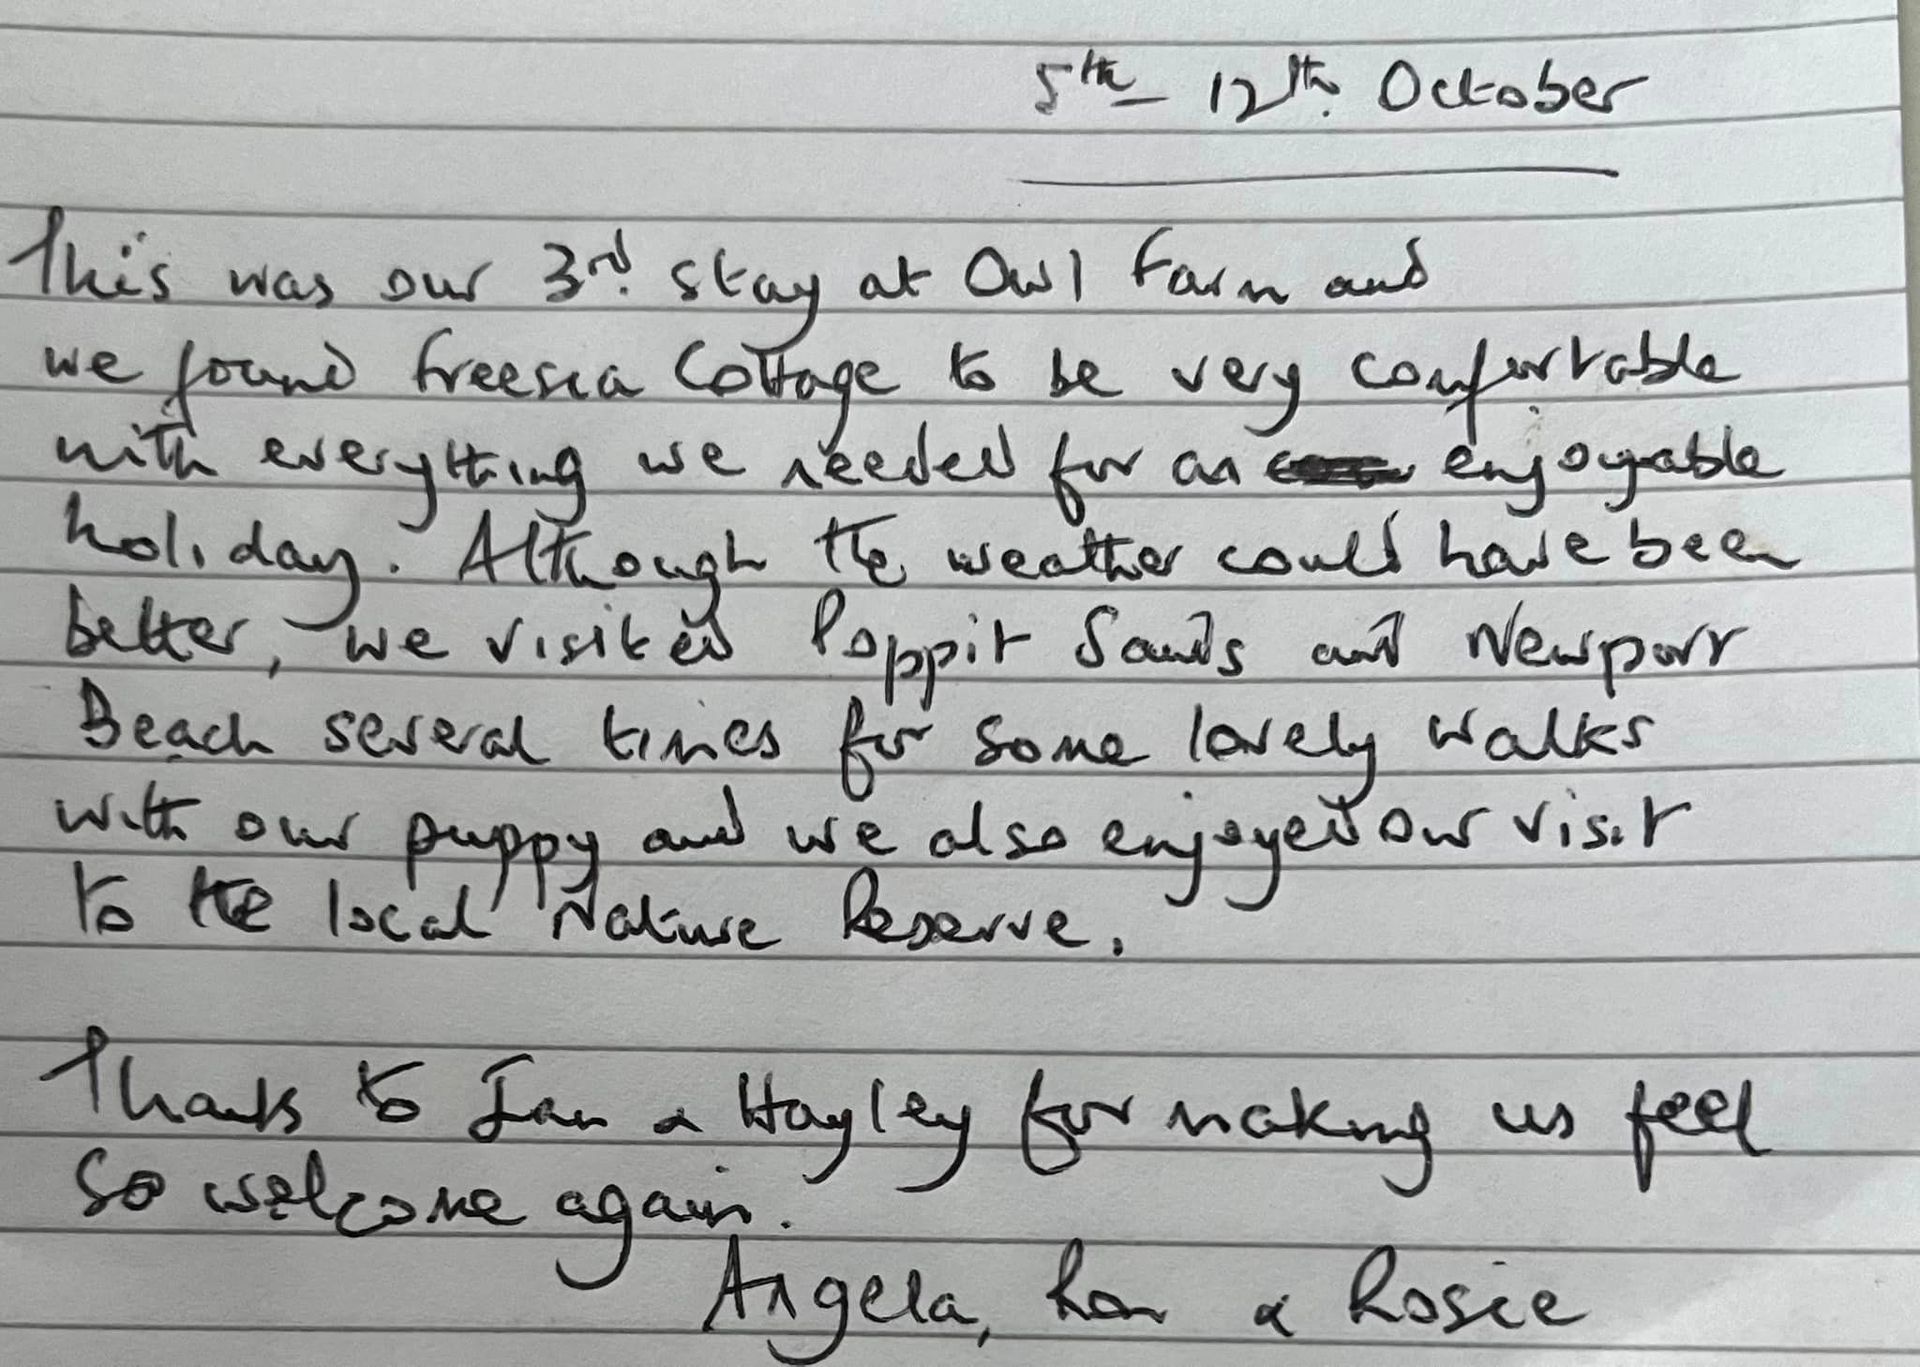 5th - 12th. October
This was our 3rd. stay at Owl Farm and
we found Freesia Cottage to be very comfortable
with everything we needed for an enjoyable
holiday. Although the weather could have been
better, we visited Poppit Sands and Newport
Beach several times for some lovely walks
with our puppy and we also enjoyed our visit
to the local Nature Reserve.
Thanks to Ian & Hayley for making us feel
so welcome again.
Angela, Ron & Rosie